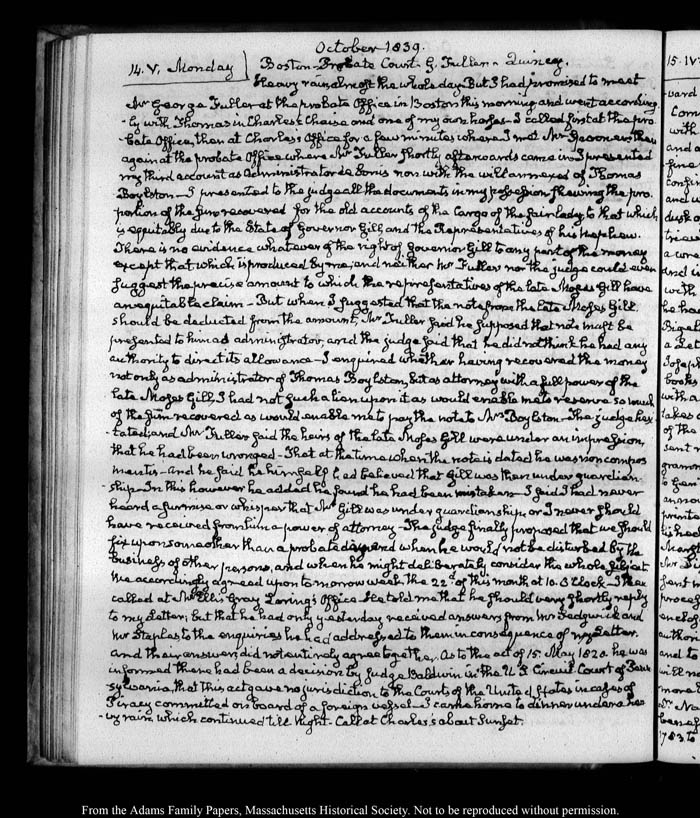 October 1839.
14. V. Monday
Boston- Probate Court- G. Fuller- Quincy.
Heavy rain almost the whole day. But I had promised to meet
Mr George Fuller at the probate Office in Boston this morning and went according-
-ly with Thomas in Charles's Chaise and one of my own horses- I called first at the pro-
bate Office, then at Charles's Office for a few minutes where I met Mr Spooner then
again at the probate Office where Mr Fuller shortly afterwards came in- I presented
my third account as Administrator de bonis non with the will annexed of Thomas
Boylston- I presented to the judge all the documents in my possession shewing the pro-
portion of the sum recovered for the old accounts of the Cargo of the fair lady, to that which
is equitably due to the Estate of Governor Gill and the Representatives of his Nephew.
There is no evidence whatever of the right of Governor Gill to any part of the money
except that which is produced by me, and neither Mr Fuller nor the judge could even
suggest the precise amount to which the representatives of the late Moses Gill have
an equitable claim- But when I suggested that the note from the late Moses Gill
should be deducted from the amount, Mr Fuller said he supposed that note must be
presented to him as administrator, and the judge said that he did not think he had any
authority to direct its allowance- I enquired whether having recovered the money
not only as administrator of Thomas Boylston, but as attorney with a full power of the
late Moses Gill, I had not such a lien upon it as would enable me to reserve so much
of the sum recovered as would enable me to pay the note to Mrs Boylston- The judge hesi-
tated, and Mr Fuller said the heirs of the late Moses Gill were under an impression,
that he had been wronged- That at the time when the note is dated he was non compos
mentis- and he said he himself had believed that Gill was then under guardian-
-ship- In this however he added he found he had been mistaken- I said I had never
heard a surmise or whisper that Mr Gill was under guardianship, or I never should
have received from him a power of attorney- The judge finally proposed that we should
fix upon some other than a probate day, and when he would not be disturbed by the
business of other persons, and when he might deliberately consider the whole subject
We accordingly agreed upon to morrow week the 22d of this month at 10. O Clock- I then
called at Mr Ellis Gray Loring's Office- He told me that he should very shortly reply
to my Letter; but that he had only yesterday received answers from Mr Sedgwick and
Mr Staples to the enquiries he had addressed to them in consequence of my Letter.
And their answers did not entirely agree together. As to the act of 15. May 1820. he was
informed there had been a decision by Judge Baldwin in the U.S. Circuit Court of Penn-
sylvania, that this act gave no jurisdiction to the Courts of the United States in cases of
Piracy committed on board of a foreign vessel- I came home to dinner under a hea-
-vy rain which continued till Night. Call at Charles's about Sunset.
15. IV.
From the Adams Family Papers, Massachusetts Historical Society. Not to be reproduced without permission.